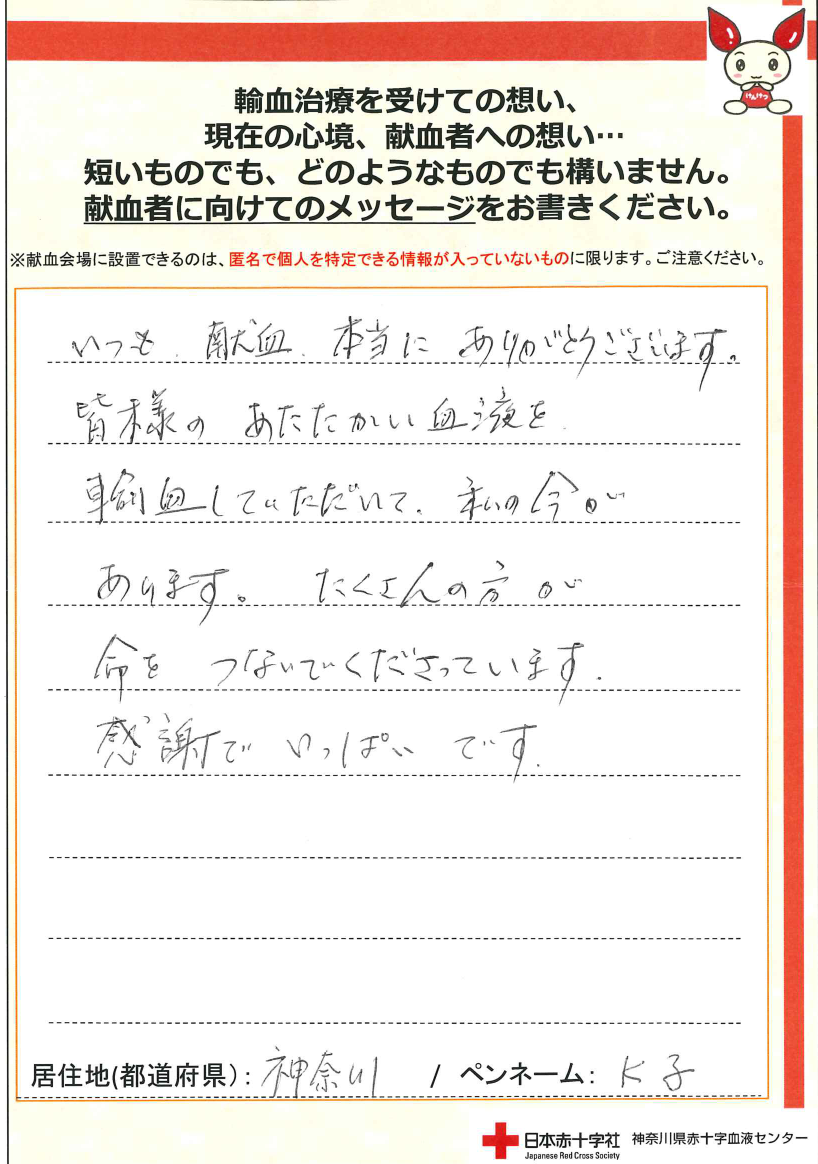 けんけつ
輸血治療を受けての想い、
現在の心境、献血者への想い…
短いものでも、どのようなものでも構いません。
献血者に向けてのメッセージをお書きください。
※献血会場に設置できるのは、匿名で個人を特定できる情報が入っていないものに限ります。ご注意ください。
いつも、献血、本当に ありがとうございます。
皆様の あたたかい血液を
輸血していただいて、私の今が
あります。 たくさんの方が
命を つないでくださっています。
感謝で いっぱい です。
居住地(都道府県): 神奈川 / ペンネーム: K子
日本赤十字社 神奈川県赤十字血液センター
Japanese Red Cross Society